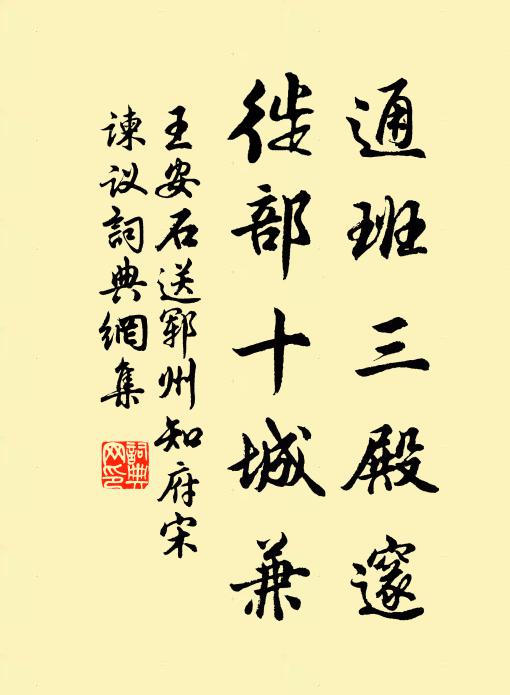 通班三殿邃
徙部十城兼
王安石送郓州知府宋
谏议词典網集
詞典網印